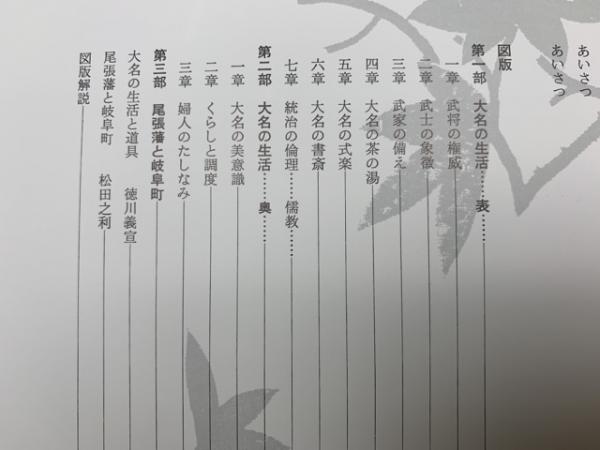 あいさつ
あいさつ
図版
第一部 大名の生活……表……
一章 武将の権威
二章 武士の象徴
三章 武家の備え
四章 大名の茶の湯
五章 大名の式楽
六章 大名の書斎
七章 統治の倫理……儒教……
第二部 大名の生活……奥……
一章 大名の美意識
二章 くらしと調度
三章 婦人のたしなみ
第三部 尾張藩と岐阜町
大名の生活と道具 徳川義宣
尾張藩と岐阜町 松田之利
図版解説